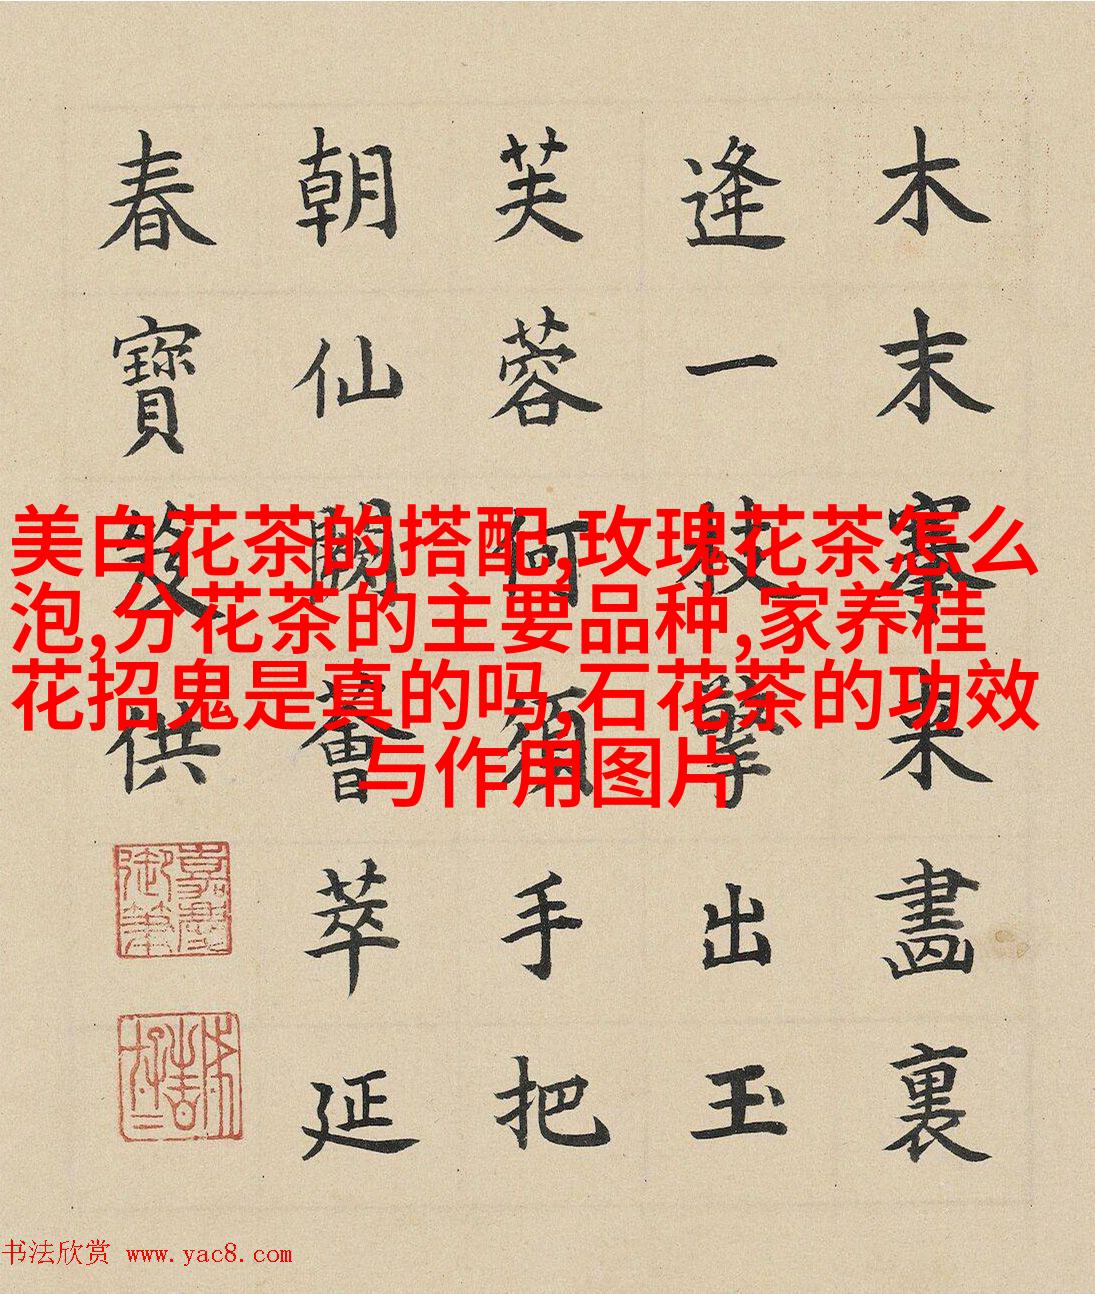 美白花茶的搭配,玫瑰花茶怎么
泡,分花茶的主要品种,家养桂
花招鬼是真的吗,石花茶的功效
与作用图片
木末搴来畫裏
逢一枝擎出玉
芙蓉何須手把
朝仙闕薈萃延
春寶笈供
嘉慶
御筆
书法欣赏 www.yac8.com